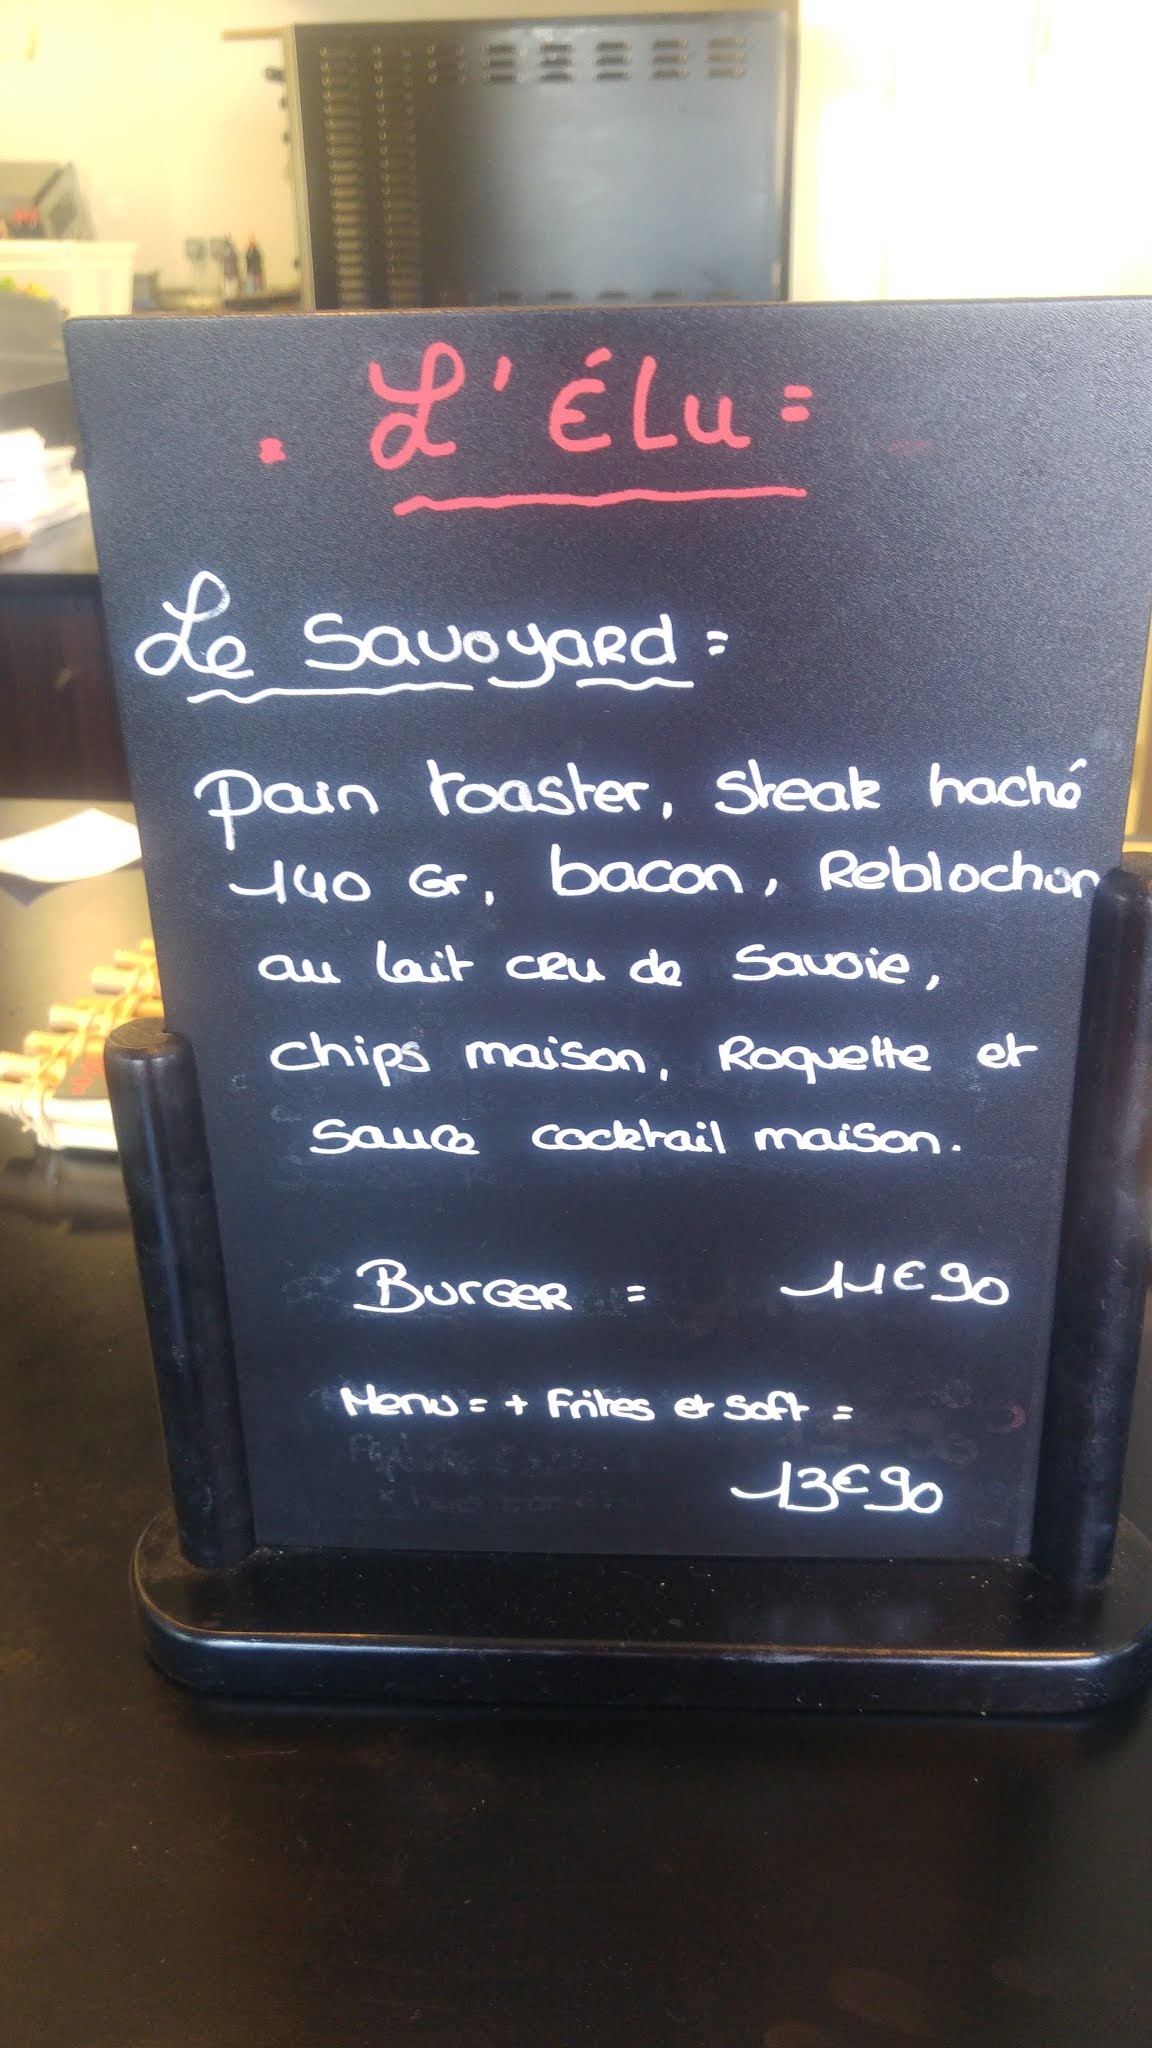 . L'Élu =
Le Savoyard =
Pain toaster, Steak haché
140 Gr, bacon, Reblochon
au lait cru de Savoie,
chips maison, Roquette et
sauce cocktail maison.
Burger = 11€90
Menu = + Frites et Soft =
13€90